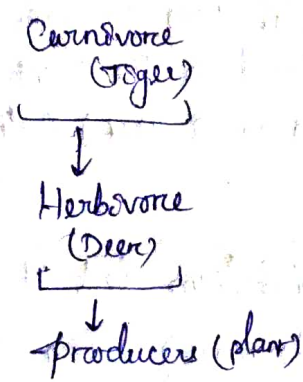 Carnivore
(Tiger)
Herbivore
(Deer)
producers (plant)